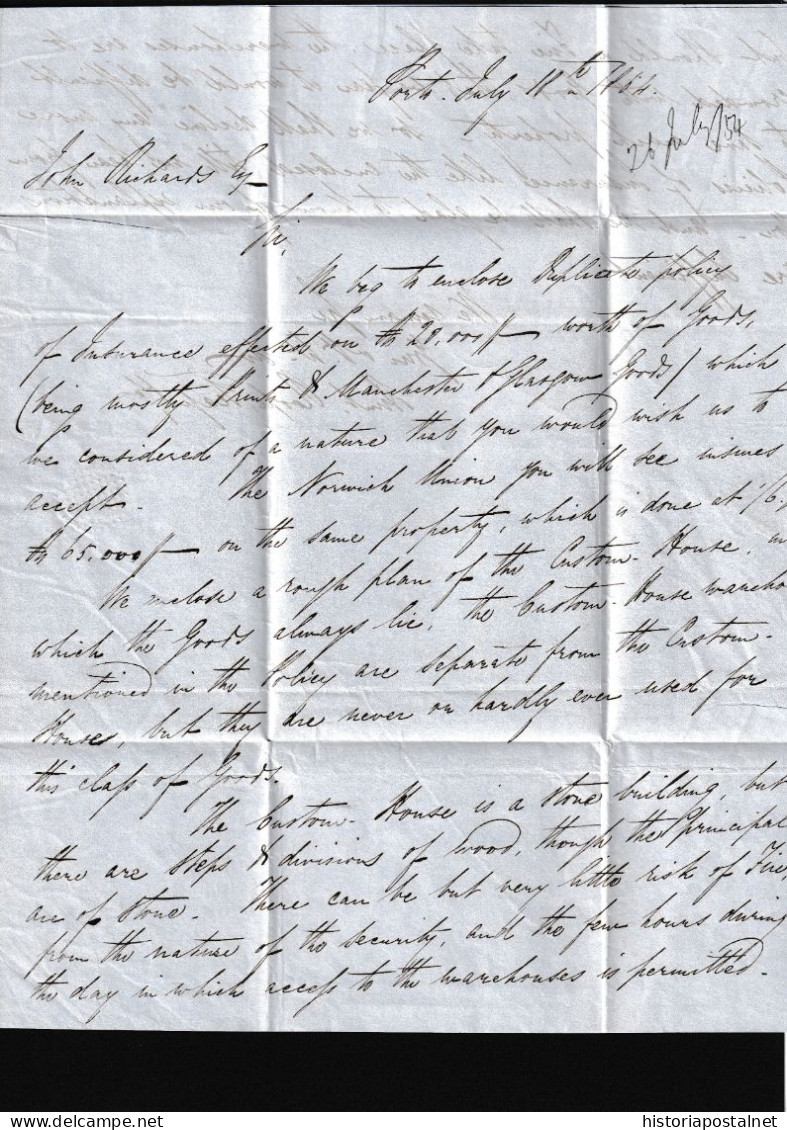 Porto. July 18th 1854.
26 July /54
John Richards Esq
Sir,
We beg to enclose Duplicate policy
of Insurance effected on 28.000// worth of Goods,
(being mostly Prints & Manchester & Glasgow Goods) which
we considered of a nature that you would wish us to
accept. The Norwich Union you will see insures
65.000// on the same property, which is done at
We enclose a rough plan of the Custom-House, in
which the Goods always lie, the Custom-House wareho
mentioned in the Policy are separate from the Custom-
House, but they are never or hardly ever used for
this class of Goods.
The Custom-House is a stone building, but
there are steps & divisions of wood, though the principal
are of stone. There can be but very little risk of Fire,
from the nature of the security, and the few hours during
the day in which access to the warehouses is permitted.
historiapostalnet